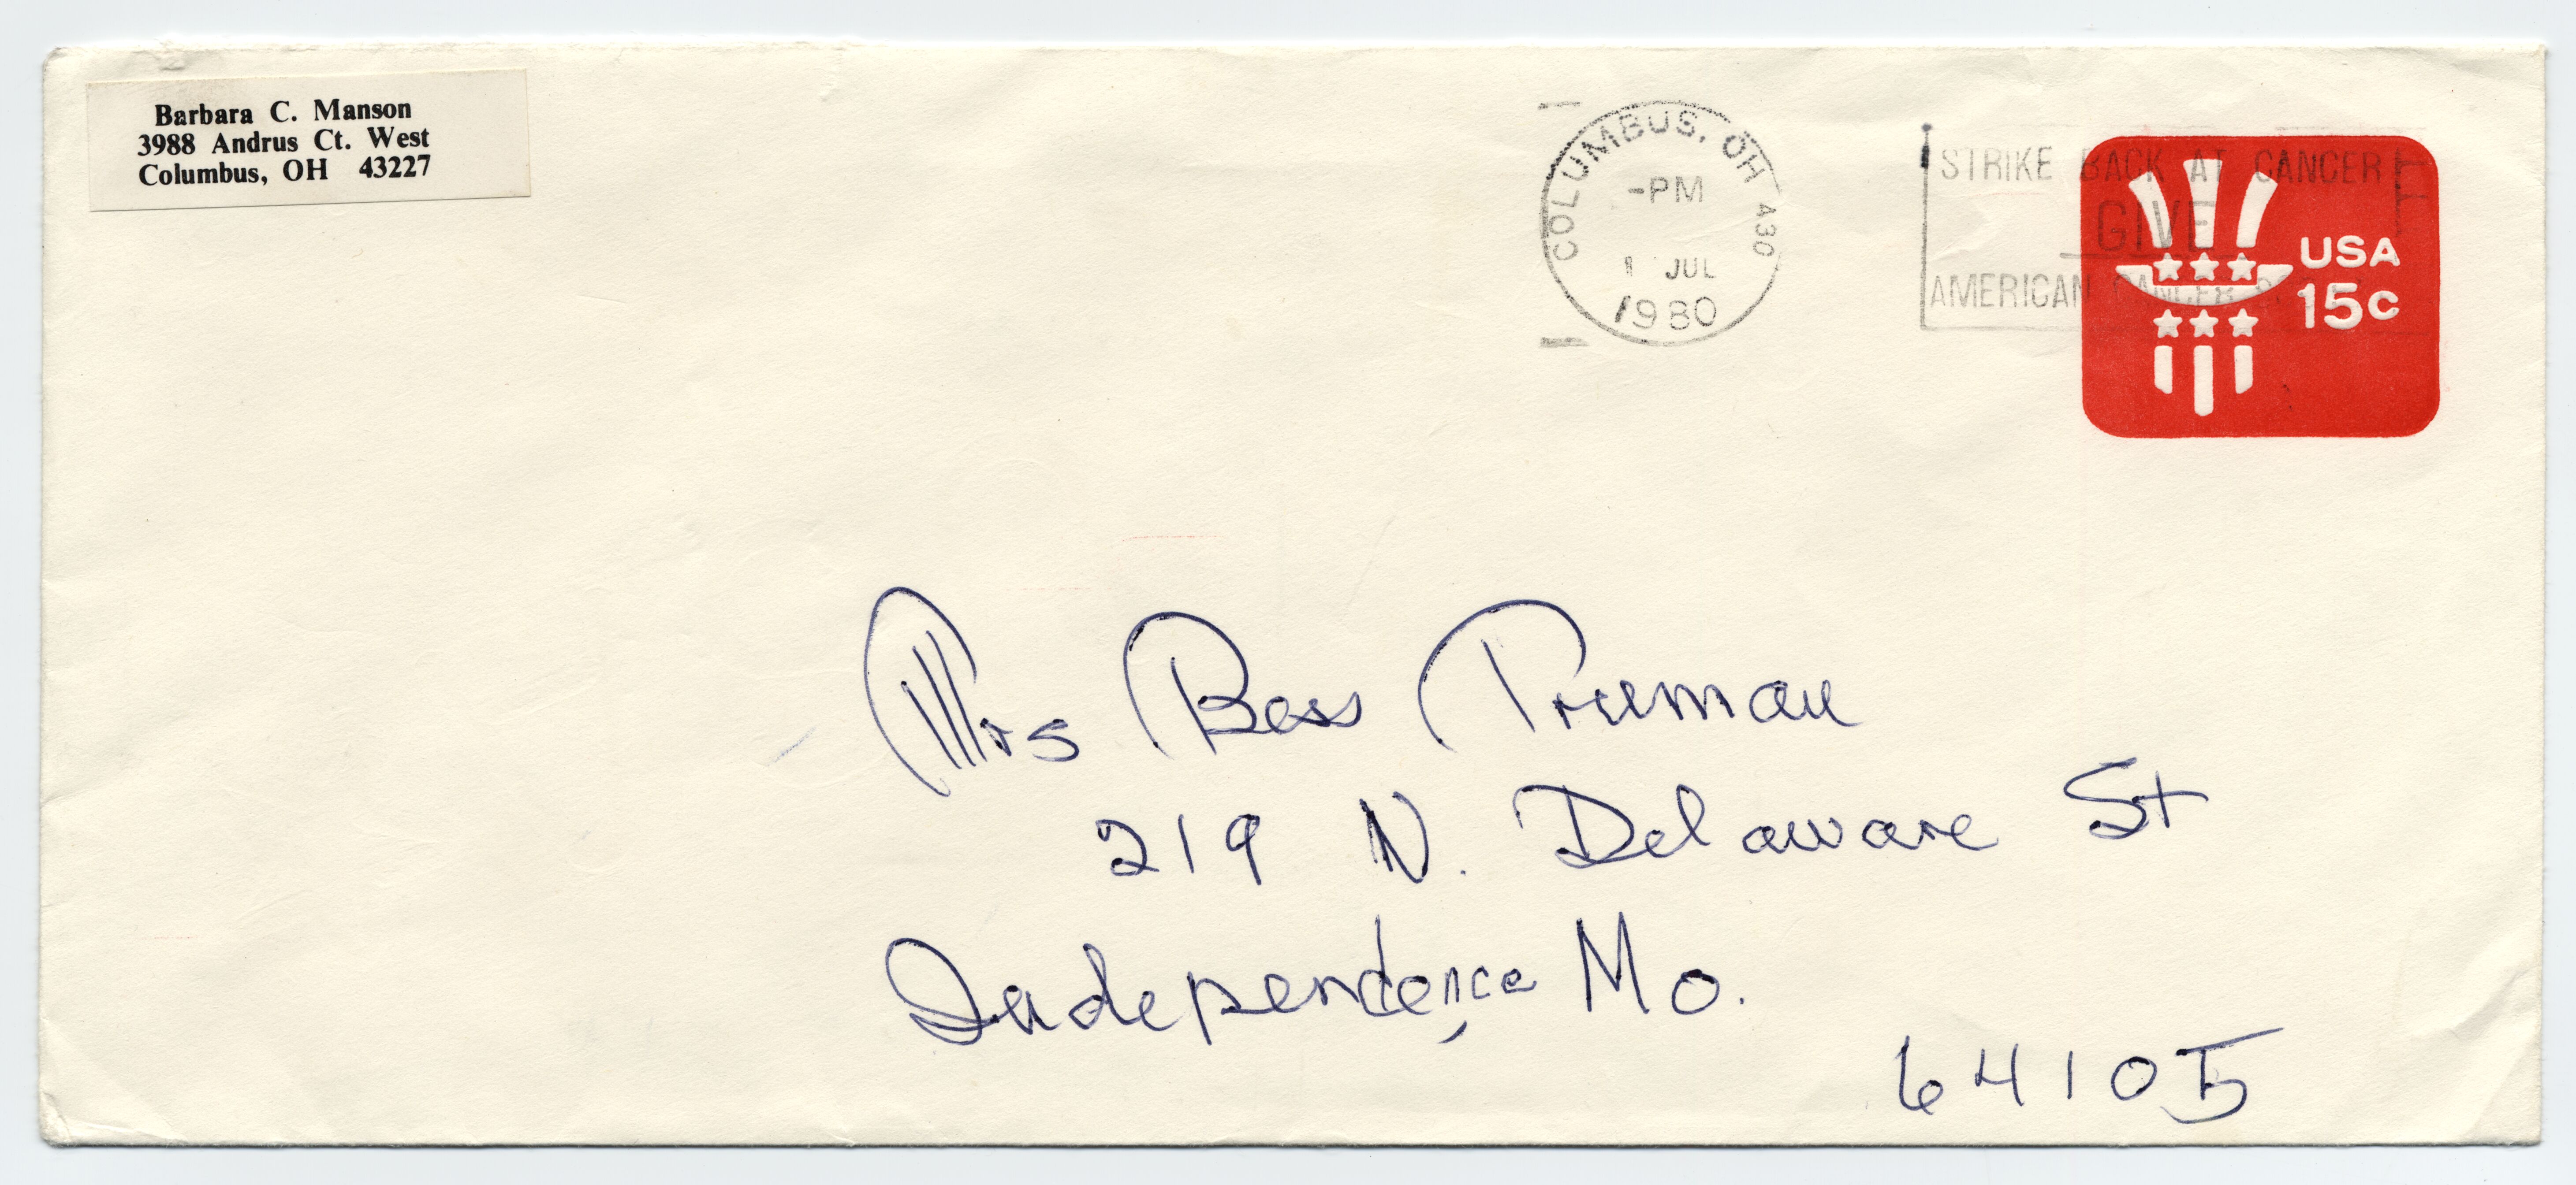 Barbara C. Manson
3988 Andrus Ct. West
Columbus, OH 43227
COLUMBUS, OH 430
-PM
1 JUL
1980
STRIKE BACK AT CANCER
GIVE
AMERICAN CANCER
USA
15c
Mrs Bess Truman
219 N. Delaware St
Independence Mo.
64105